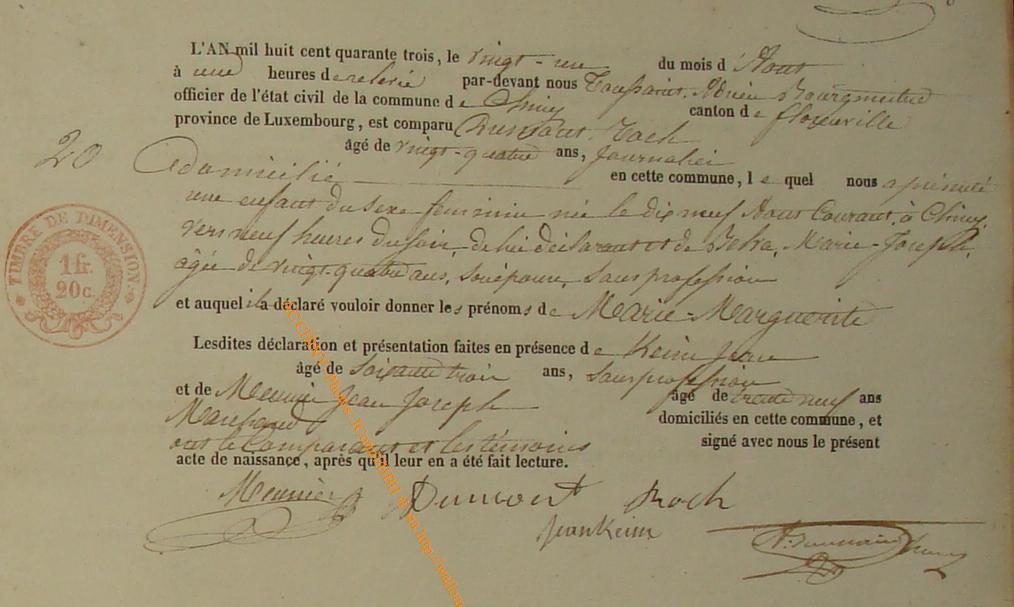 L'AN mil huit cent quarante trois, le vingt-un du mois d'Aout
à une heures de relevée par-devant nous Toussaint, Adrien Bourgmestre
officier de l'état civil de la commune de Chiny canton de florenville
province de Luxembourg, est comparu Dumont Roch
âgé de vingt-quatre ans, journalier
20
domicilié en cette commune, lequel nous a présenté
une enfant du sexe feminin née le dix neuf Aout Courant, à Chiny,
vers neuf heures du soir, de lui déclarant et de Marie-Joseph,
âgée de vingt-quatre ans, son épouse, sans profession
et auquel il a déclaré vouloir donner les prénoms de Marie-Marguerite
TIMBRE DE DIMENSION
1 fr.
20c.
Lesdites déclaration et présentation faites en présence de Keim Jean
âgé de soixante trois ans, sans profession
et de Meunier Jean Joseph âgé de trente neuf ans
Marchand domiciliés en cette commune, et
ont le Comparant et les témoins signé avec nous le présent
acte de naissance, après qu'il leur en a été fait lecture.
Meunier Dumont Roch
Jean Keim